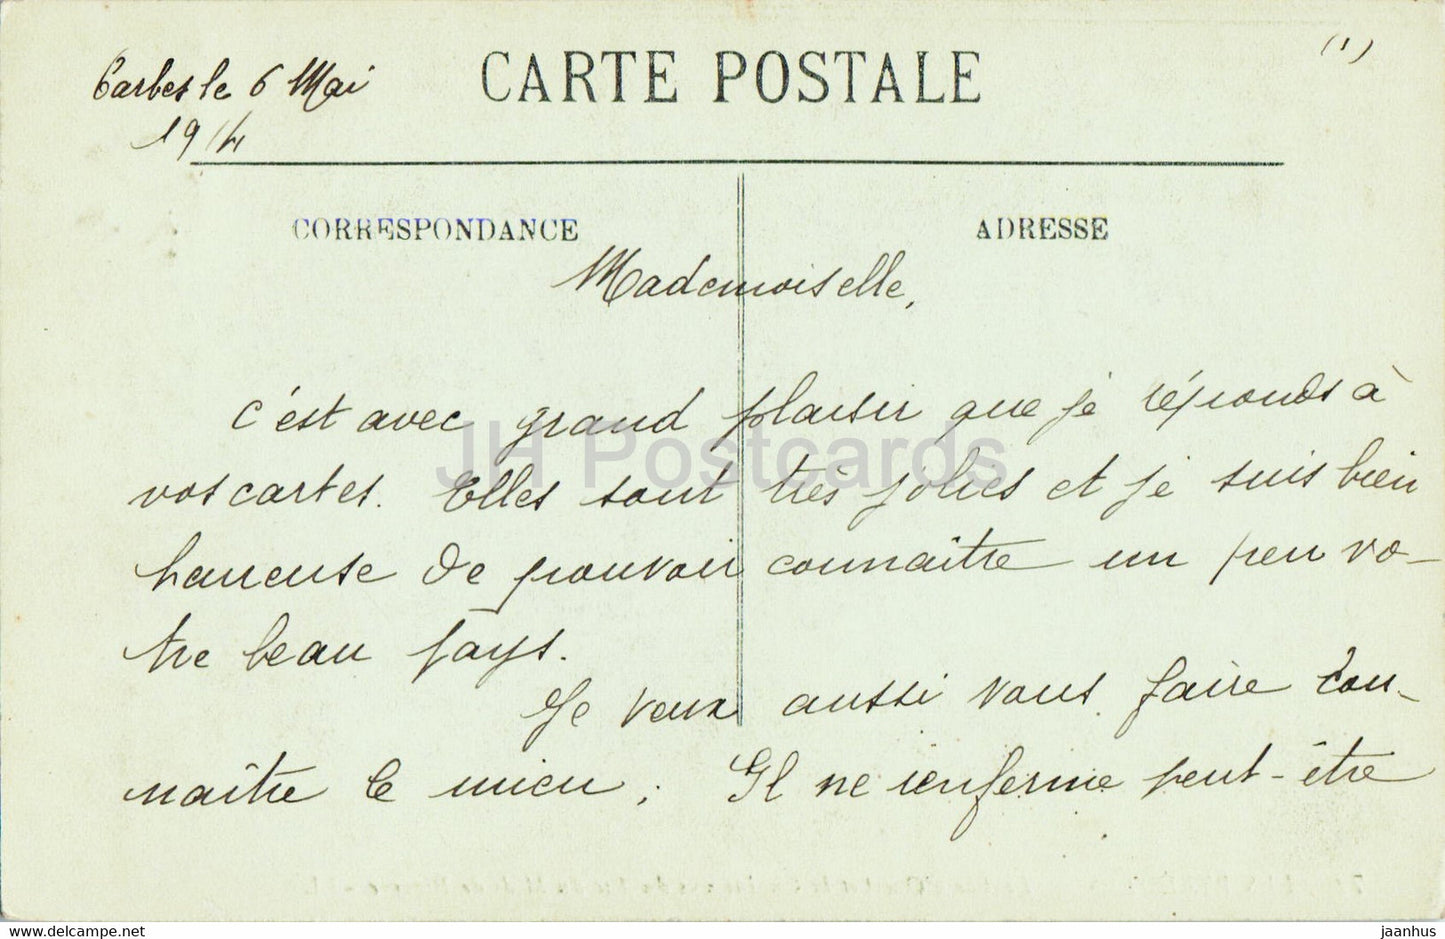 (1)
Tarbes le 6 Mai
1914
CARTE POSTALE
CORRESPONDANCE
ADRESSE
Mademoiselle,
c'est avec grand plaisir que je réponds à
vos cartes. Elles sont très jolies et je suis bien
heureuse de pouvoir connaître un peu vo-
tre beau pays.
Je veux aussi vous faire con-
naître le mien ; Il ne renferme peut-être
JH Postcards
Carte postale
jaanhus